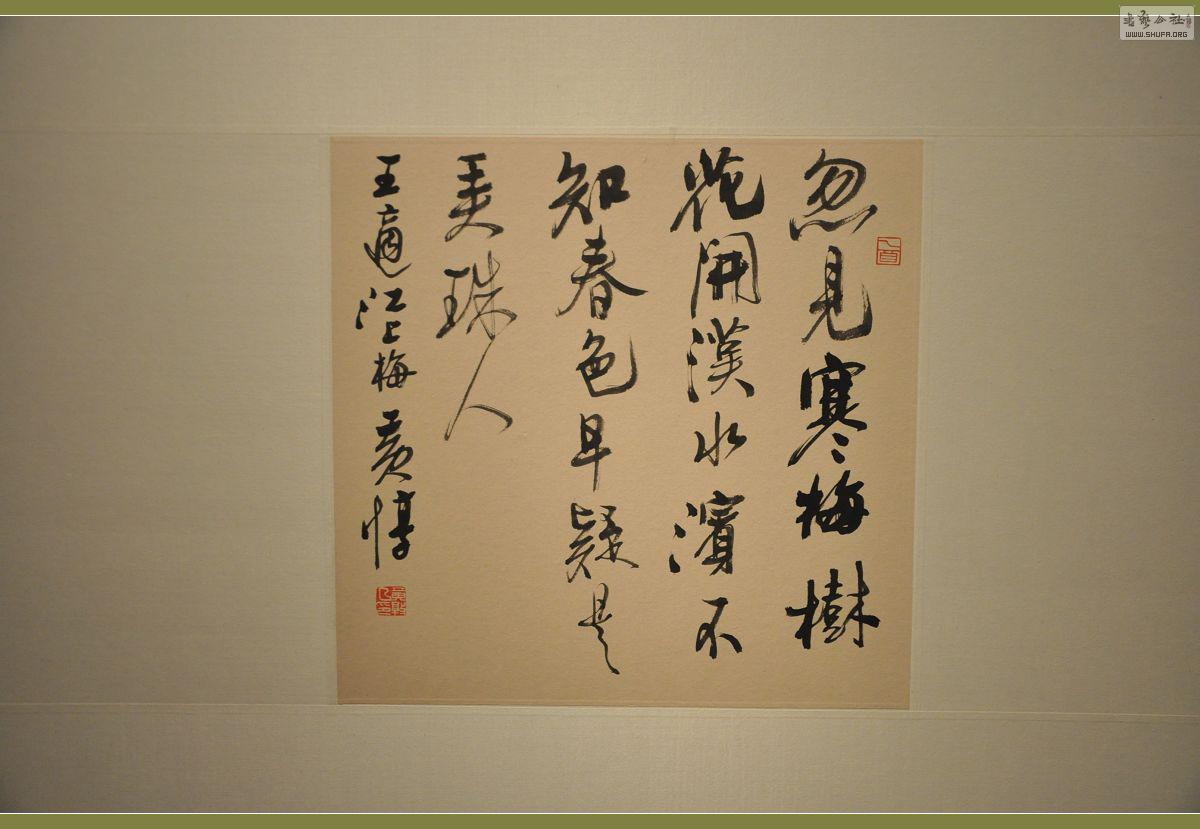 忽見寒梅樹
花開漢水濱不
知春色早疑是
弄珠人
王適江上梅 黃惇
书艺公社
WWW.SHUFA.ORG